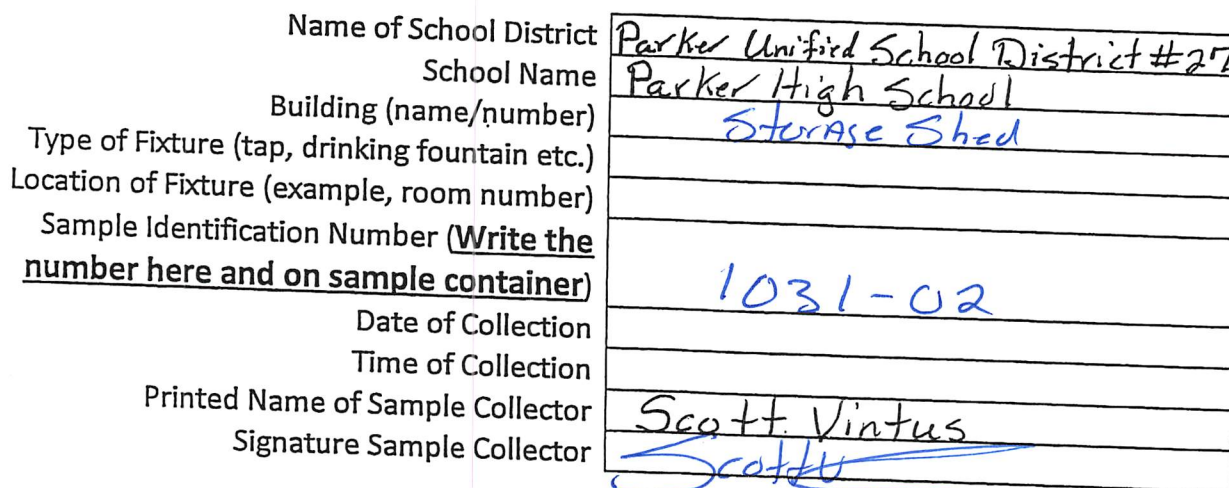 Name of School District Parker Unified School District #27
School Name Parker High School
Building (name/number) Storage Shed
Type of Fixture (tap, drinking fountain etc.)
Location of Fixture (example, room number)
Sample Identification Number (Write the
number here and on sample container) 1031-02
Date of Collection
Time of Collection
Printed Name of Sample Collector Scott Vintus
Signature Sample Collector ScottV